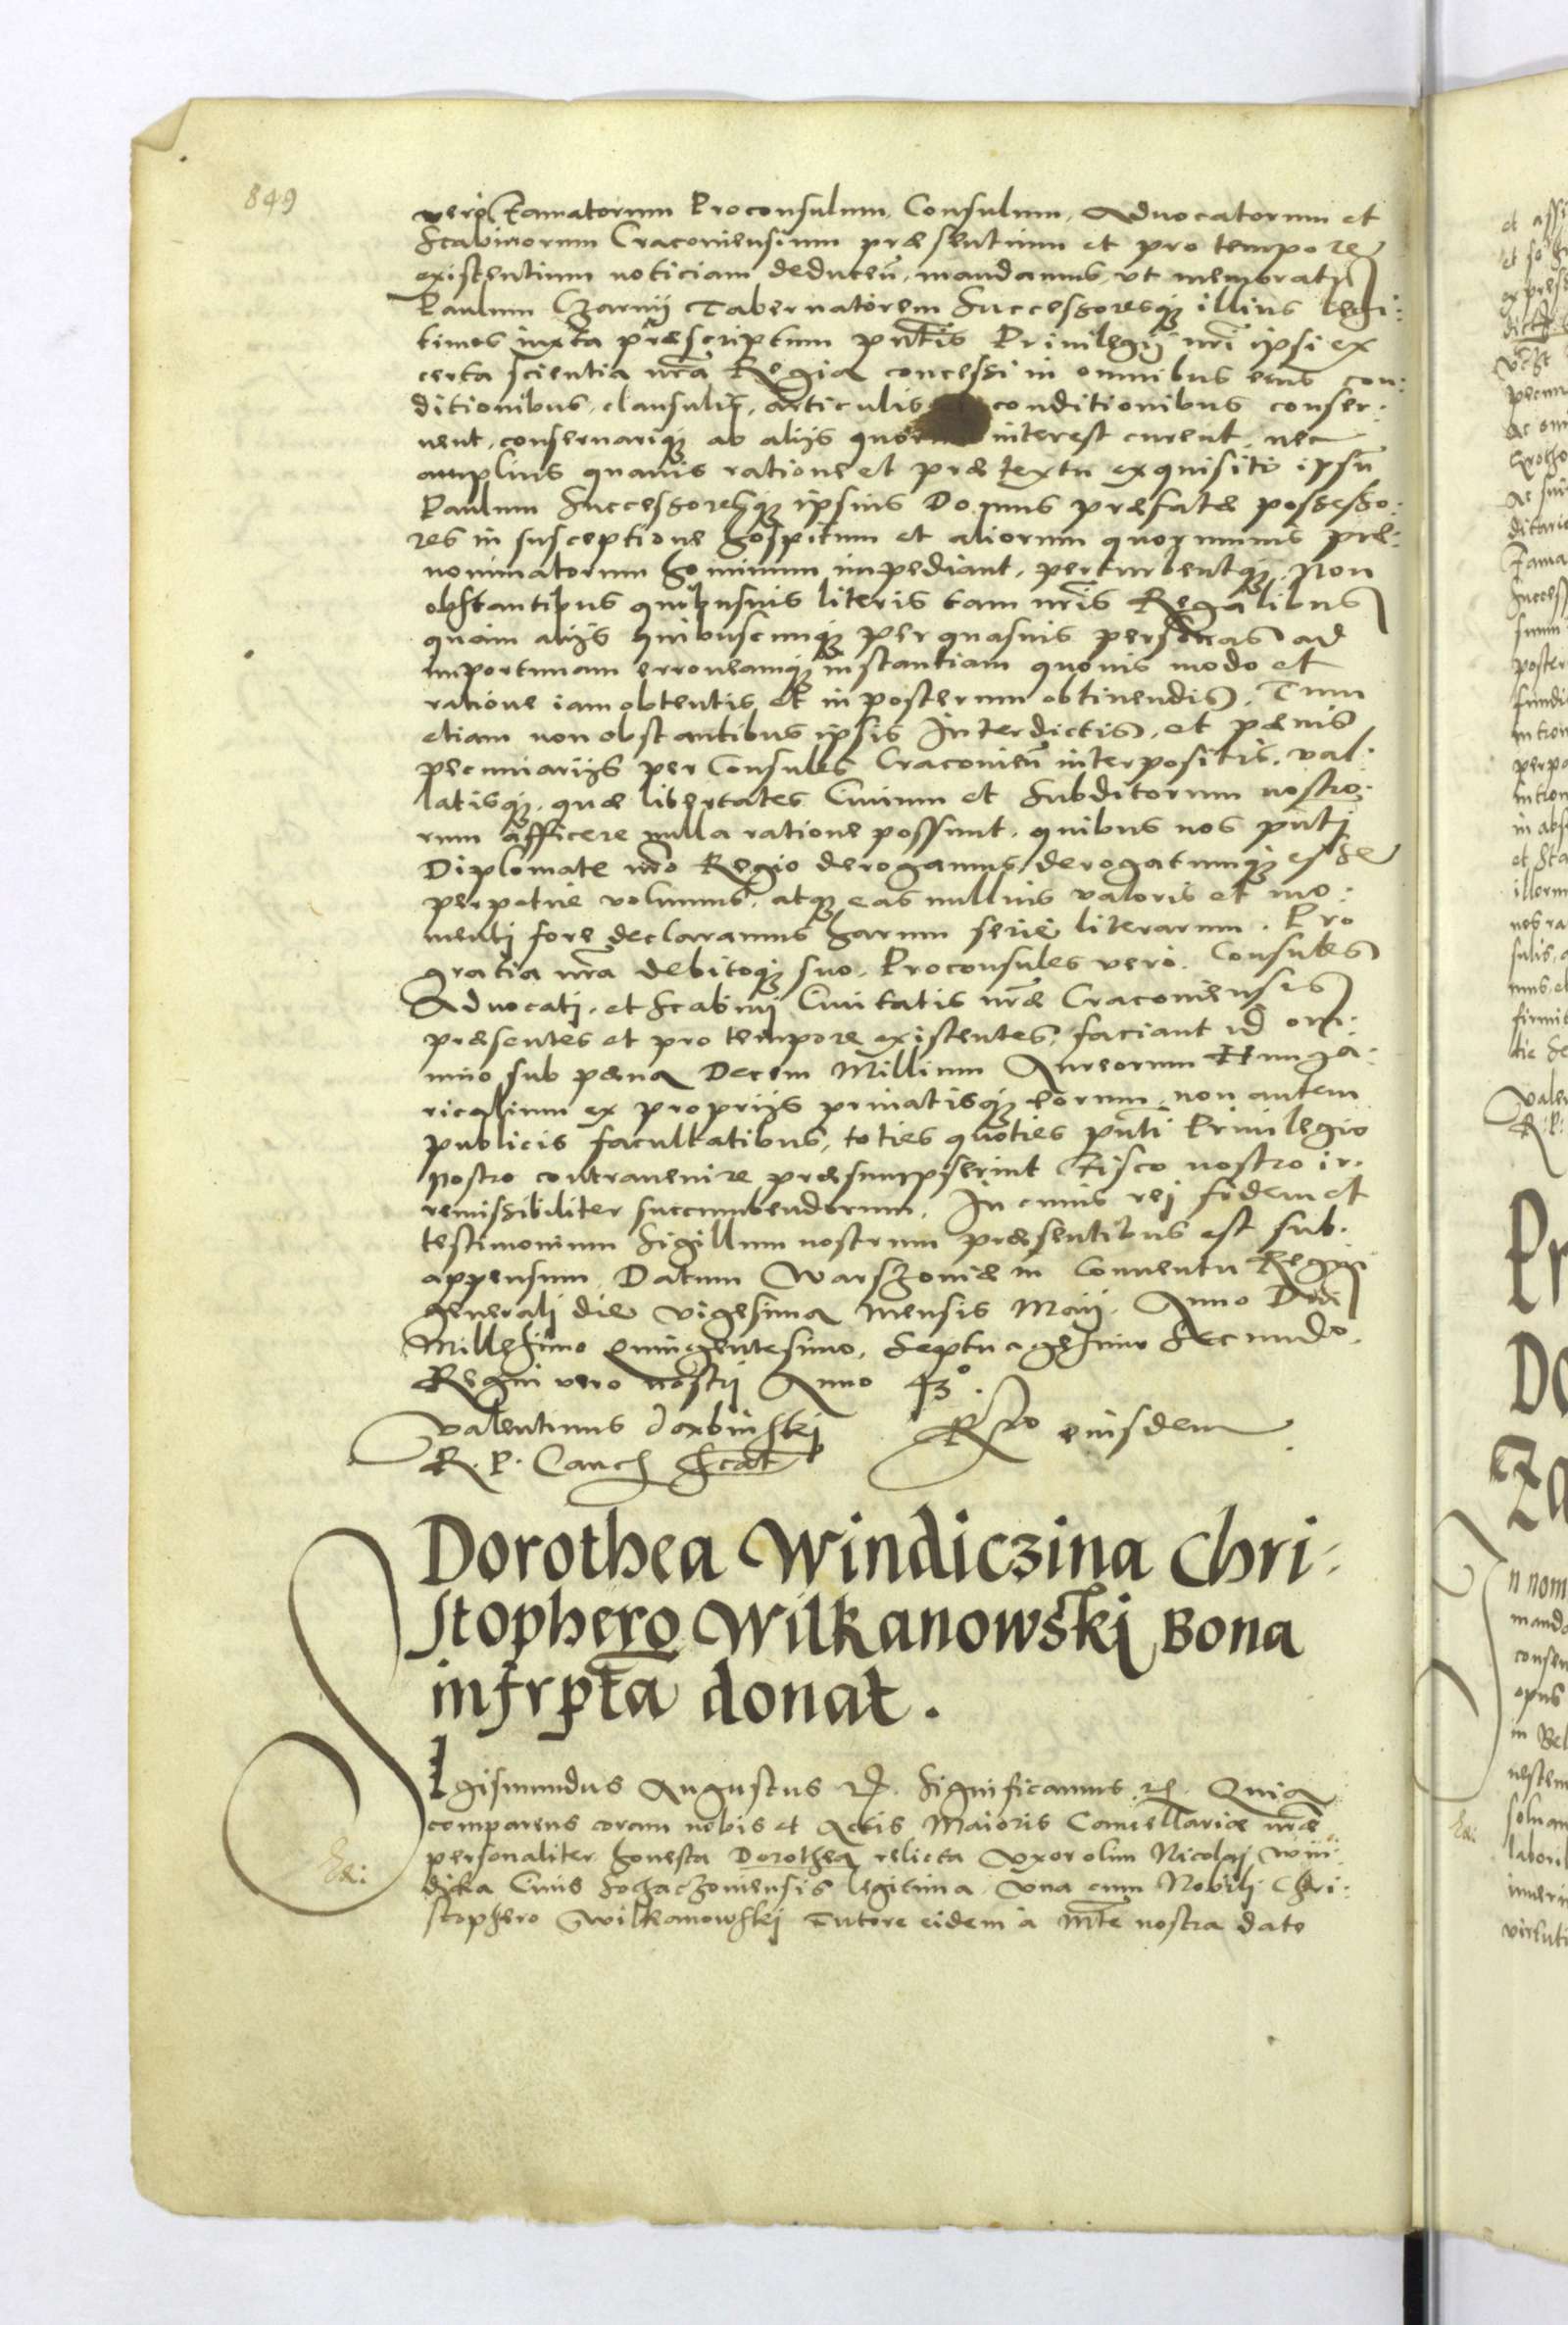 849
vero Famatorum Proconsulum, Consulum, Advocatorum et
Scabinorum Cracoviensium præsentium et pro tempore
existentium noticiam deducen̄. mandamus, ut memoratū
Paulum Czarnij Tabernatorem Successoresq; illius legi:
timos iuxta præscriptum pn̄tis Privilegij nr̄i ipsi ex
certa scientia nr̄a Regia concessi in omnibus eius con:
ditionibus, clausulis, articulis conditionibus conser:
uent, conseruariq; ab alijs interest curent, nec
amplius quauis ratione et prætextu exquisito ipsū
Paulum Successoresq; ipsius Domus præfatæ possesso:
res in susceptione hospitum et aliorum quorumuis præ:
nominatorum hominum impediant, perturbentq;. Non
obstantibus quibusuis literis tam nr̄is Regalibus
quam alijs quibuscunq; per quasuis personas ad
importunam erroneamq; instantiam quouis modo et
ratione iam obtentis et in posterum obtinendis. Tum
etiam non obstantibus ipsis Interdictis, et pænis
pecuniarijs per Consules Cracovien̄ interpositis, val:
latisq;, quæ libertates Ciuium et Subditorum nostro:
rum afficere nulla ratione possunt, quibus nos pn̄ti
Diplomate nr̄o Regio derogamus, derogatumq; esse
perpetue volumus, atq; eas nullius valoris et mo:
menti fore declaramus harum serie literarum. Pro
gratia nr̄a debitoq; suo. Proconsules vero, Consules
Advocati, et Scabini Ciuitatis nr̄æ Cracoviensis
præsentes et pro tempore existentes, faciant id om:
nino sub pæna Decem Millium Aureorum Hunga:
ricalium ex proprijs priuatisq; eorum, non autem
publicis facultatibus, toties quoties pn̄ti Priuilegio
nostro contrauenire præsumpserint Fisco nostro ir:
remissibiliter succumbendorum. In cuius rei fidem et
testimonium Sigillum nostrum præsentibus est sub:
appensum. Datum Warszoviæ in Conuentu Regni
generali die vigesima mensis Maij. Anno Dn̄i
Millesimo Quingentesimo, Septuagesimo Secundo.
Regni vero nostri Anno 43°.
Valentinus Dąbinskj
R. P. Canc̄
Rtio eiusdem
Dorothea Windiczina Chri:
stophero Wilkanowski Bona
infrpt̄a donat.
Igismundus Augustus Significamus Quia
comparens coram nobis et Actis Maioris Cancellariæ nr̄æ
personaliter honesta Dorothea relicta Vxor olim Nicolaj Win:
dika Ciuis Sochaczouiensis legitima, Vna cum Nobili Chri:
stophero Wilkanowskj Tutore eidem a Mt̄e nostra dato